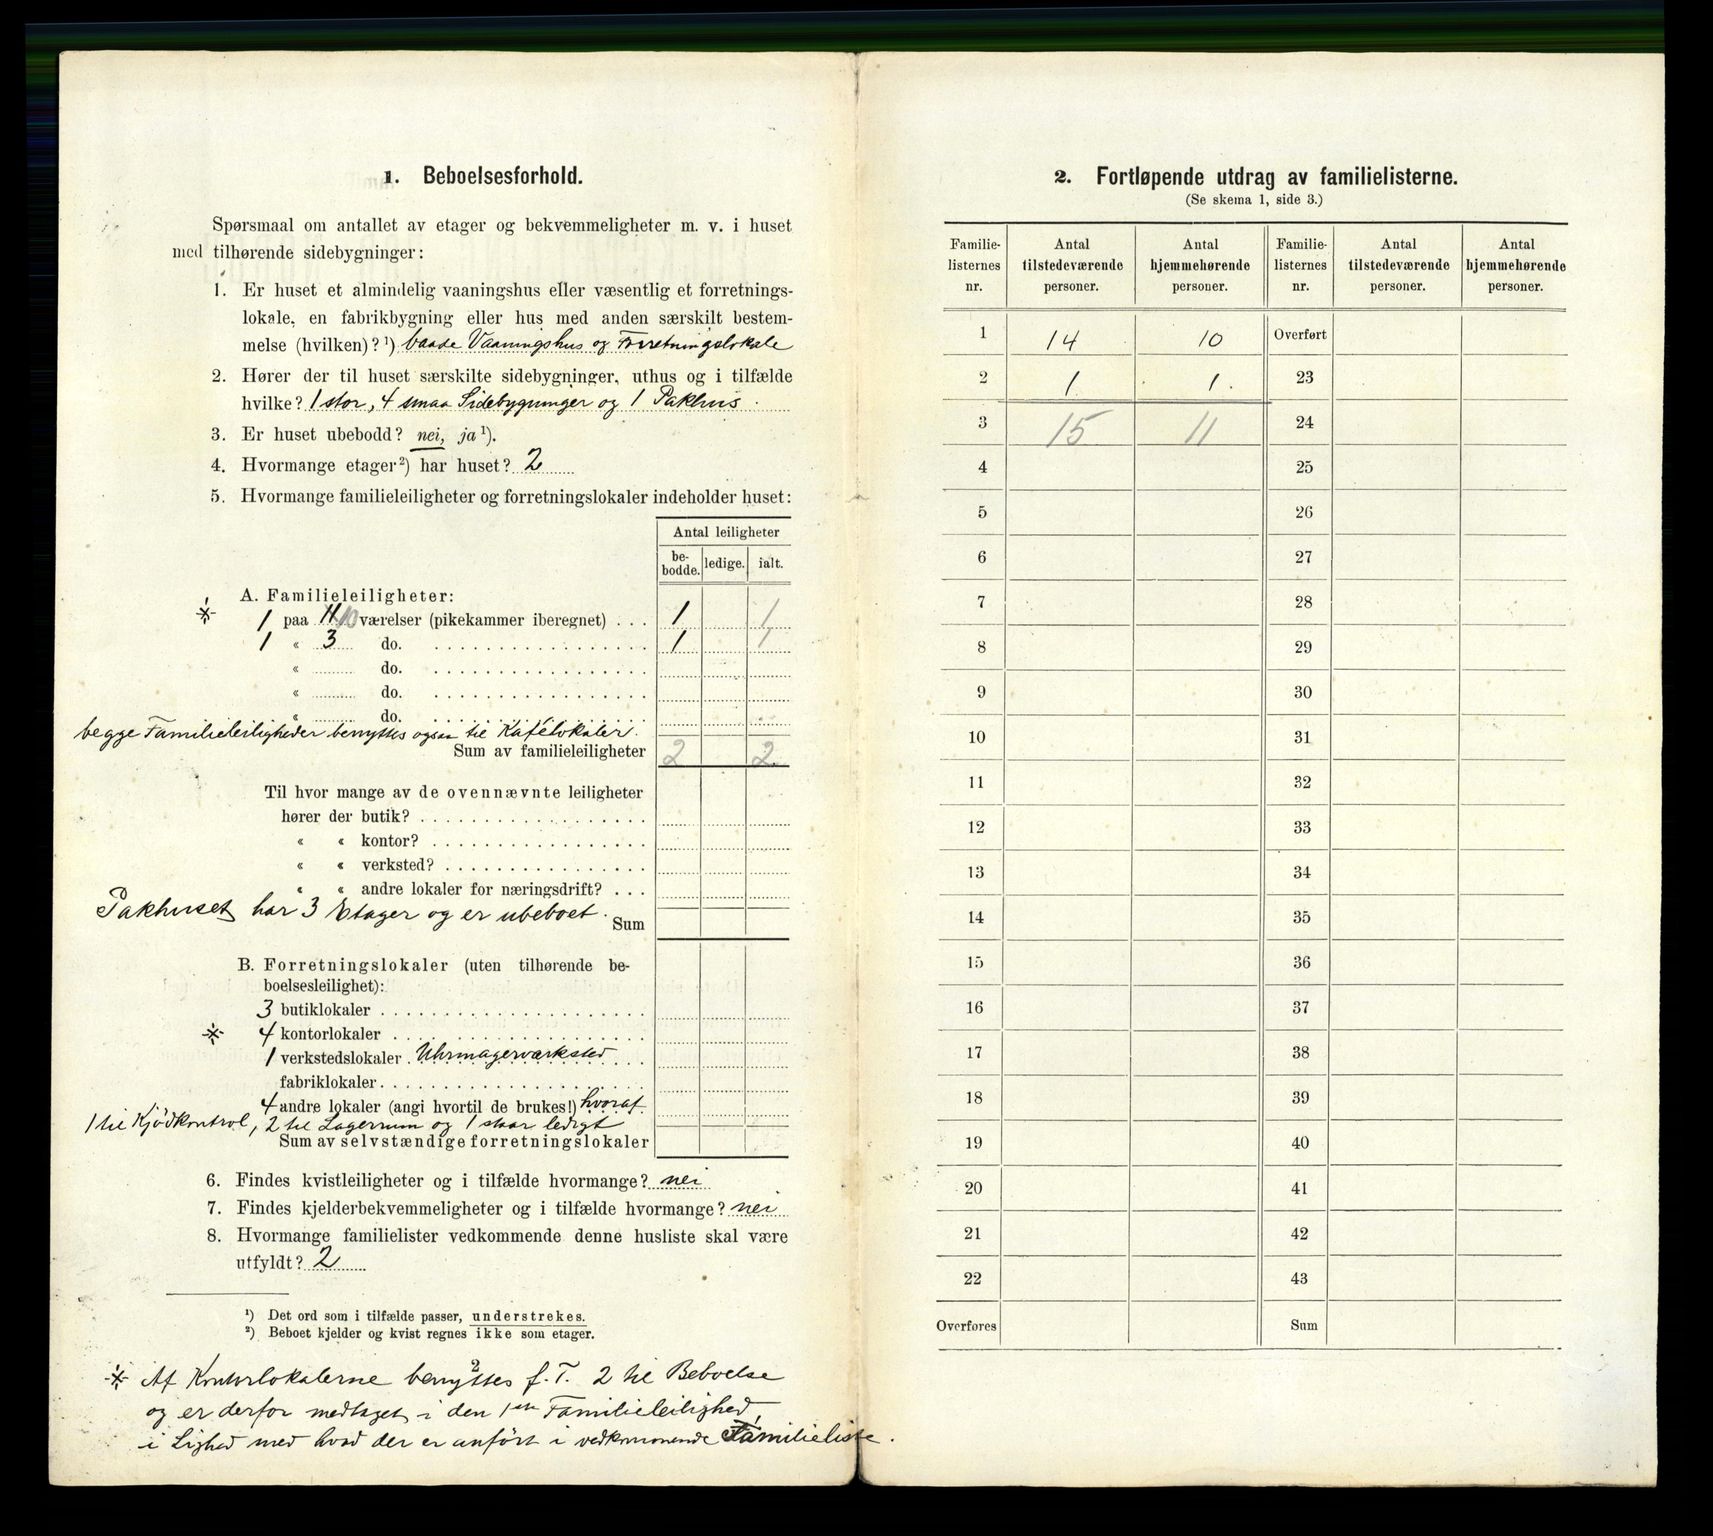 1. Beboelsesforhold.
Spørsmaal om antallet av etager og bekvemmeligheter m. v. i huset
med tilhørende sidebygninger:
1. Er huset et almindelig vaaningshus eller væsentlig et forretnings-
lokale, en fabrikbygning eller hus med anden særskilt bestem-
melse (hvilken)?¹) baade Vaaningshus og Forretningslokale
2. Hører der til huset særskilte sidebygninger, uthus og i tilfælde
hvilke? 1 stor, 4 smaa Sidebygninger og 1 Pakhus.
3. Er huset ubebodd? nei, ja¹).
4. Hvormange etager²) har huset? 2
5. Hvormange familieleiligheter og forretningslokaler indeholder huset:
Antal leiligheter
be-
bodde. ledige. ialt.
A. Familieleiligheter:
* 1 paa 11/10 værelser (pikekammer iberegnet) . . . 1 1
1 « 3 do. 1 1
« do.
« do.
« do.
begge Familieleiligheder benyttes ogsaa til Kafélokaler.
Sum av familieleiligheter 2 2.
Til hvor mange av de ovennævnte leiligheter
hører der butik?
« « kontor?
« « verksted?
« « andre lokaler for næringsdrift? . . .
Pakhuset har 3 Etager og er ubeboet.
Sum
B. Forretningslokaler (uten tilhørende be-
boelsesleilighet):
3 butiklokaler
* 4 kontorlokaler
1 verkstedslokaler. Uhrmagerværksted
fabriklokaler
4 andre lokaler (angi hvortil de brukes!) hvoraf
1 til Kjödkontrol, 2 til Lagerrum og 1 staar ledigt
Sum av selvstændige forretningslokaler
6. Findes kvistleiligheter og i tilfælde hvormange? nei
7. Findes kjelderbekvemmeligheter og i tilfælde hvormange? nei
8. Hvormange familielister vedkommende denne husliste skal være
utfyldt? 2
¹) Det ord som i tilfælde passer, understrekes.
²) Beboet kjelder og kvist regnes ikke som etager.
* Af Kontorlokalerne benyttes f. T. 2 til Beboelse
og er derfor medtaget i den 1ste Familieleilighed,
i Lighed med hvad der er anført i vedkommende Familieliste.
2. Fortløpende utdrag av familielisterne.
(Se skema 1, side 3.)
Familie- Antal Antal Familie- Antal Antal
listernes tilstedeværende hjemmehørende listernes tilstedeværende hjemmehørende
nr. personer. personer. nr. personer. personer.
1 14 10 Overført
2 1 1. 23
3 15 11 24
4 25
5 26
6 27
7 28
8 29
9 30
10 31
11 32
12 33
13 34
14 35
15 36
16 37
17 38
18 39
19 40
20 41
21 42
22 43
Overføres Sum